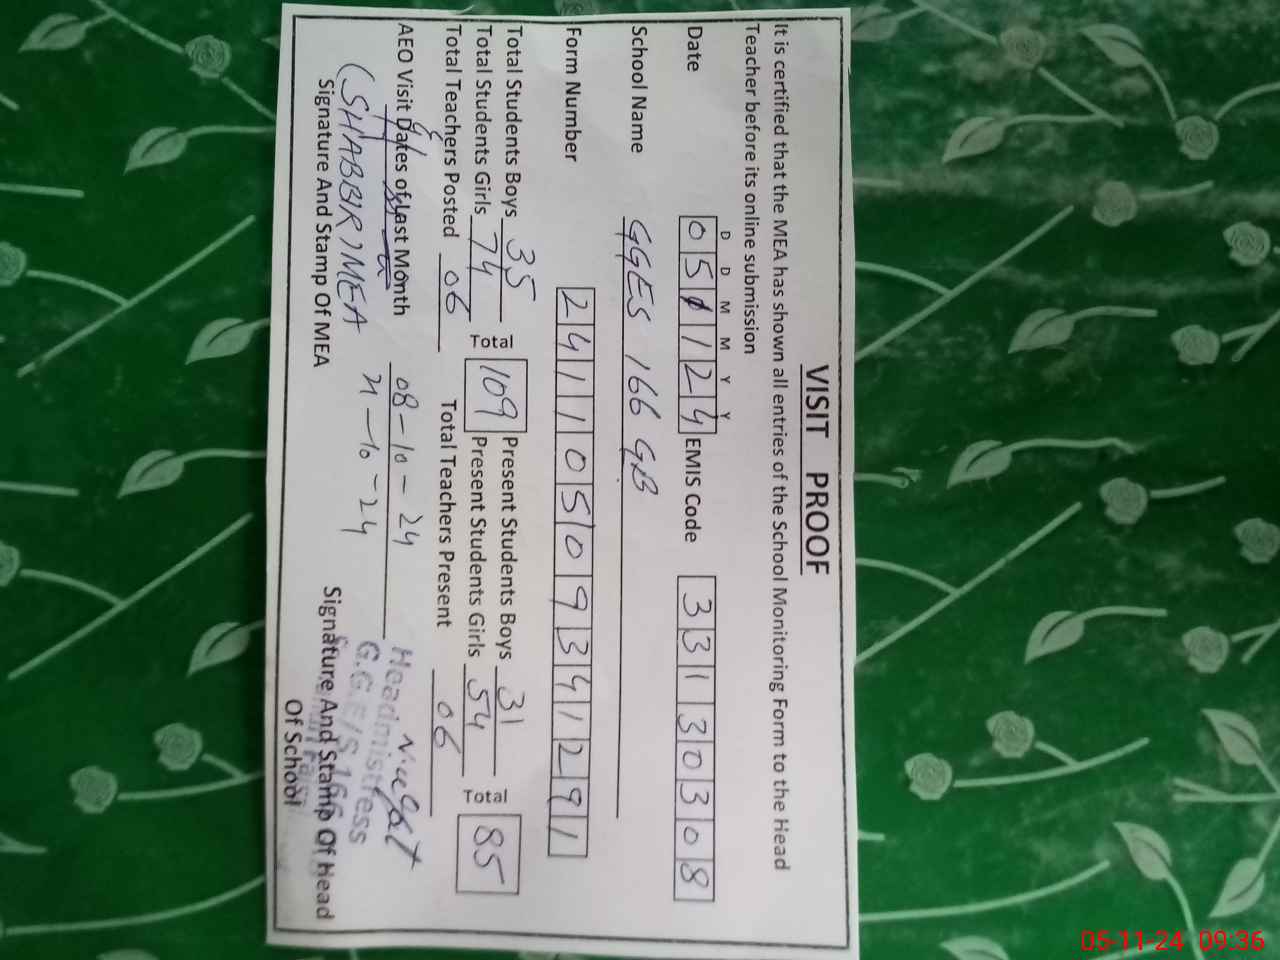 VISIT PROOF
It is certified that the MEA has shown all entries of the School Monitoring Form to the Head
Teacher before its online submission
D D M M Y Y
Date 051124 EMIS Code 33130308
School Name GGES 166 GB
Form Number 24110509341291
Total Students Boys 35 Present Students Boys 31
Total 109 Total 85
Total Students Girls 74 Present Students Girls 54
Total Teachers Posted 06 Total Teachers Present 06
AEO Visit Dates of last Month 08-10-24
21-10-24
(SHABBIR) MEA
Headmistress
G.G.E/S 166
Signature And Stamp Of MEA Signature And Stamp Of Head
Of School
05-11-24 09:36